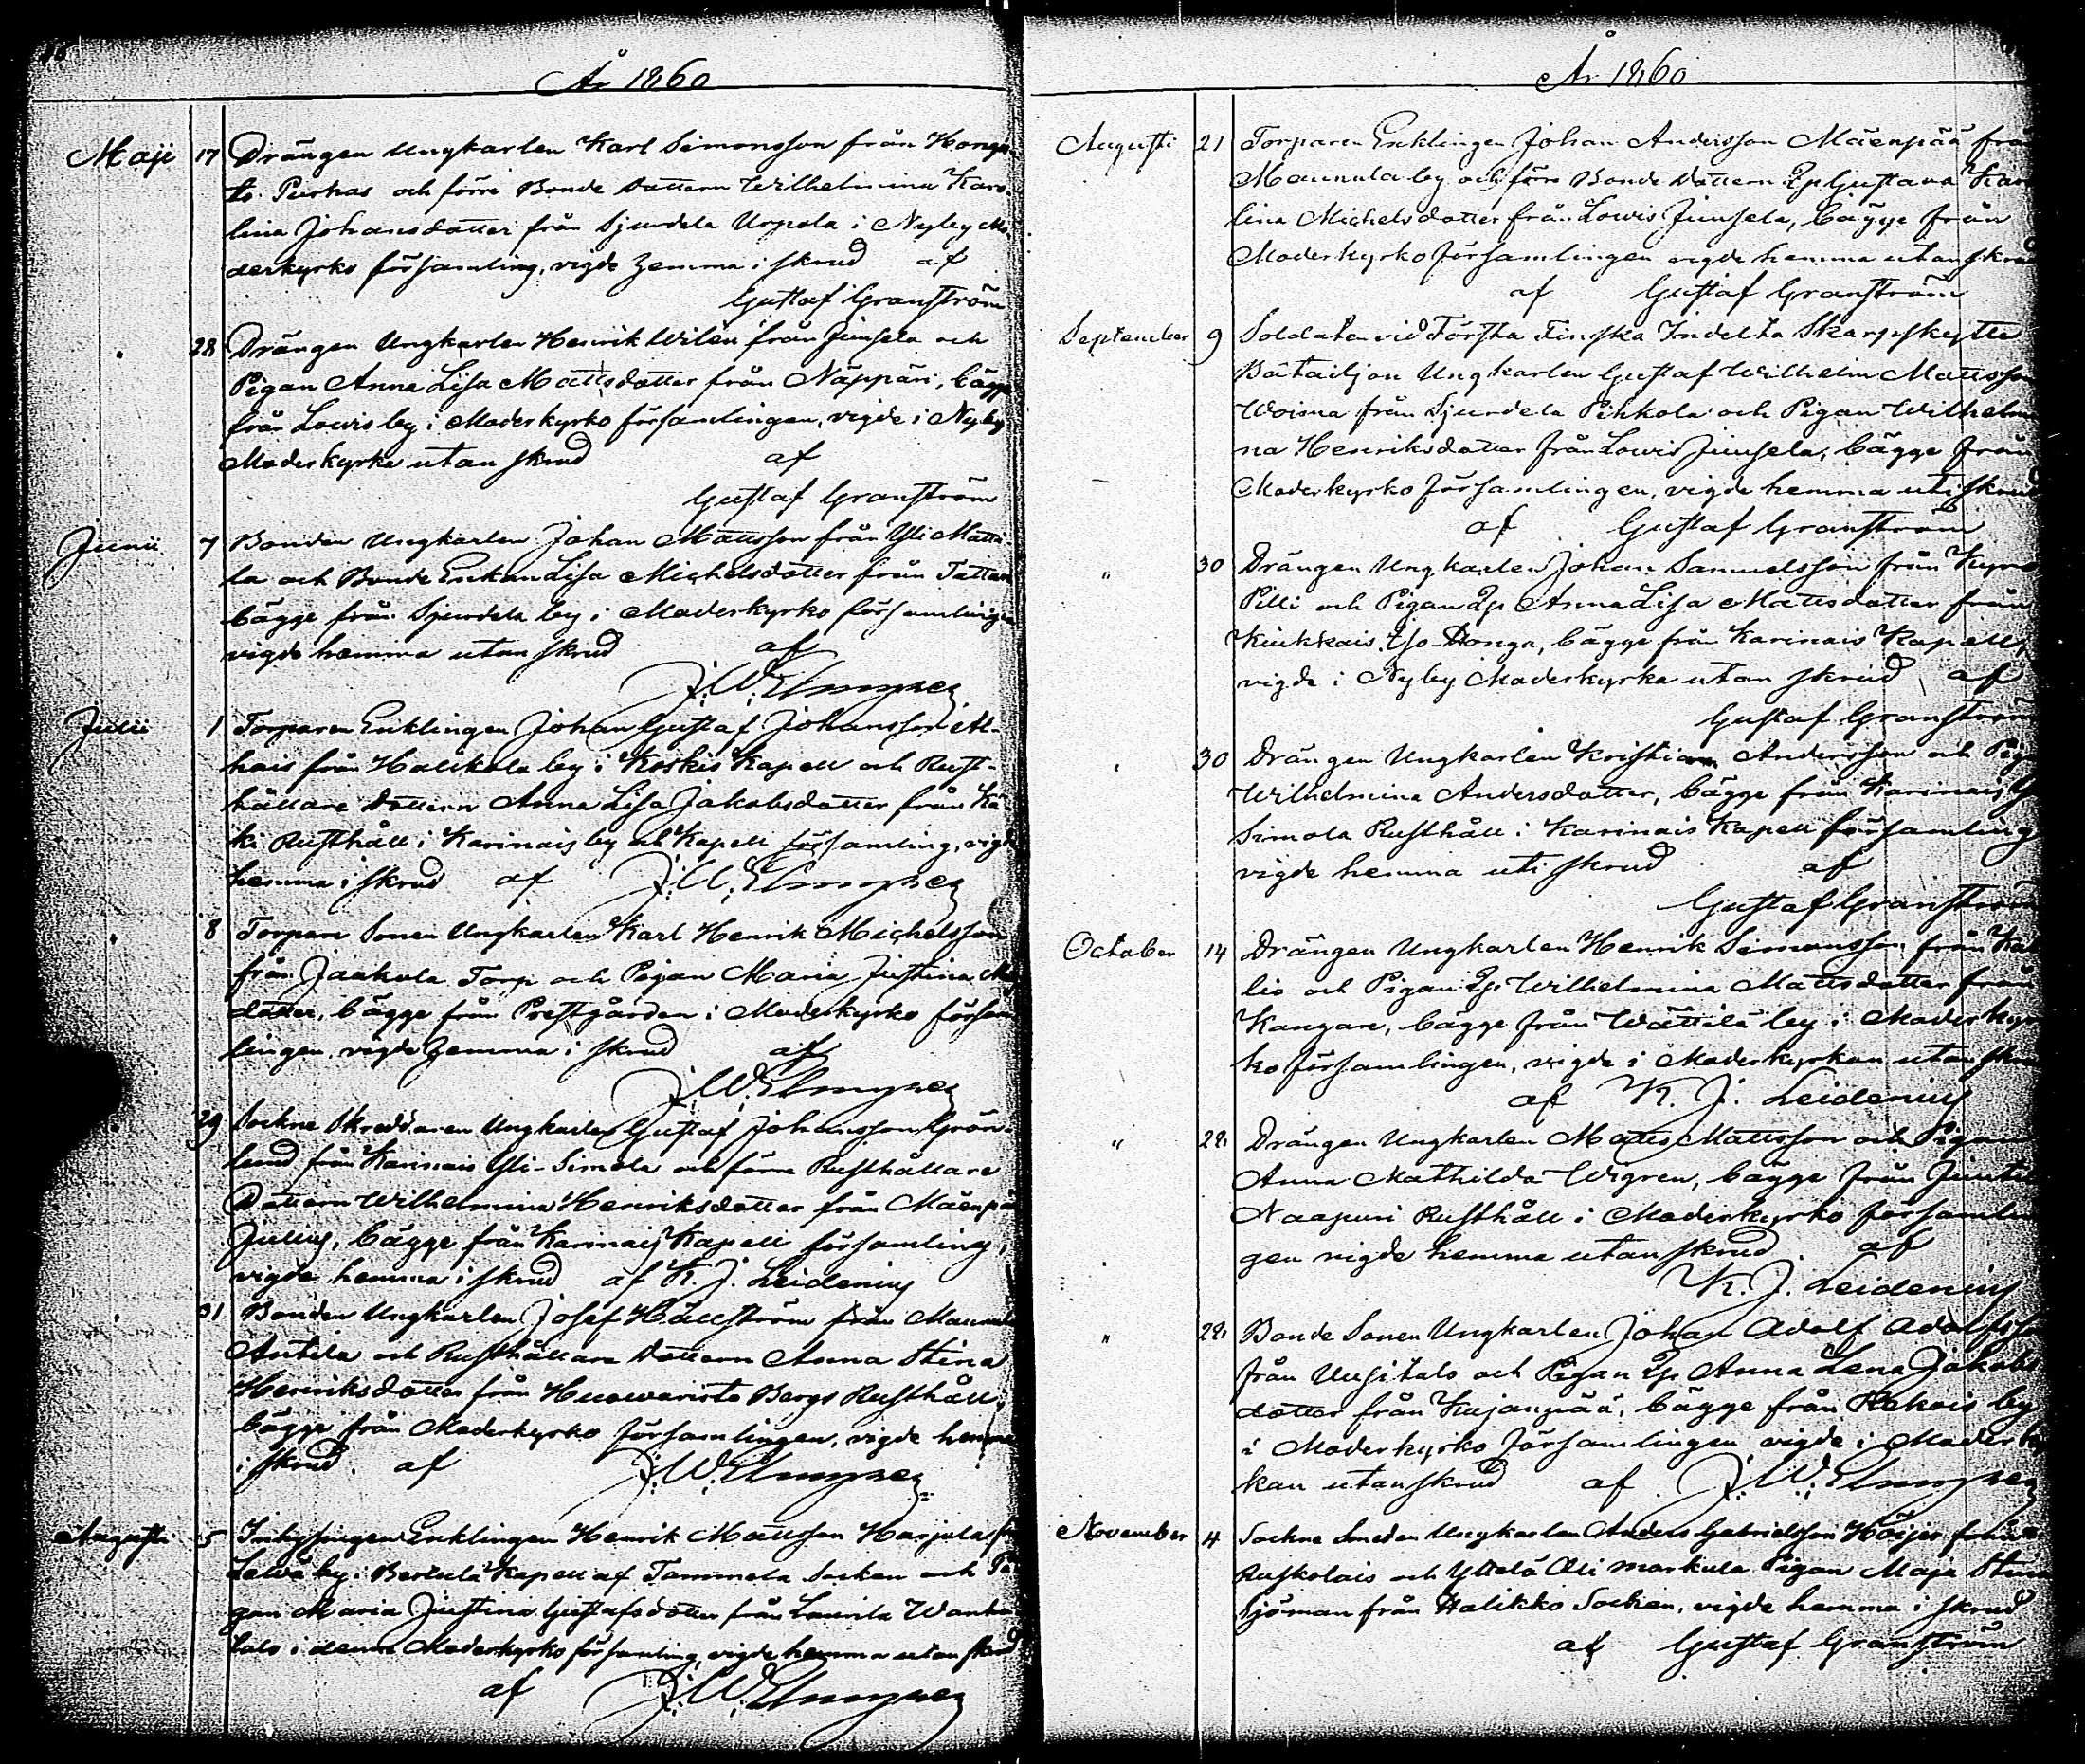 År 1860
Maji 17 Drängen Ungkarlen Karl Simonsson från Honga-
to Purhas och förre Bonde Dottern Wilhelmina Karo-
lina Johansdotter från Sjurdela Urpola i Nyby Mo-
derkyrko församling, vigde hemma i skrud af
Gustaf Granström
28 Drängen Ungkarlen Henrik Wilén från Juusela och
Pigan Anna Lisa Mattsdotter från Näppäri, bägge
från Lowis by i Moderkyrko församlingen, vigde i Nyby
Moderkyrka utan skrud af
Gustaf Granström
Junii 7 Bonden Ungkarlen Johan Mattsson från Yli Matti-
la och Bonde Enkan Lisa Michelsdotter från Tattari
bägge från Sjurdela by i Moderkyrko församlingen
vigde hemma utan skrud af
J. W. Elmgren
Julii 1 Torparen Enklingen Johan Gustaf Johansson Al-
hais från Halikola by i Koskis Kapell och Rust-
hållare Dottern Anna Lisa Jakobsdotter från Kä-
ki Rusthåll i Karinais by och Kapell församling, vigde
hemma i skrud af J. W. Elmgren
8 Torpare Sonen Ungkarlen Karl Henrik Michelsson
från Jaakola Torp och Pigan Maria Justina
dotter, bägge från Prestgården i Moderkyrko försam
lingen, vigde hemma i skrud af
J. W. Elmgren
29 Sockne Skreddaren Ungkarlen Gustaf Johansson Grön-
lund från Karinais Yli-Simola och förre Rusthållare
Dottern Wilhelmina Henriksdotter från Mäenpää
Julius, bägge från Karinais Kapell församling,
vigde hemma i skrud af K. J. Leidenius
31 Bonden Ungkarlen Josef Hällström från Maunula
Antila och Rusthållare Dottern Anna Stina
Henriksdotter från Huowaristo Bergs Rusthåll,
bägge från Moderkyrko församlingen, vigde hemma
i skrud af J. W. Elmgren
Augusti 5 Inhysingen Enklingen Henrik Mattsson Harjula från
by i Kapell af Tammela Socken och Pi-
gan Maria Justina Gustafsdotter från Laurila Wanha
talo i denna Moderkyrko församling, vigde hemma utan skrud
af J. W. Elmgren
År 1860
Augusti 21 Torparen Enklingen Johan Andersson Mäenpää från
Maunula by och förre Bonde Dottern Gustava Karo
lina Michelsdotter från Lowis Juusela, bägge från
Moderkyrko församlingen vigde hemma utan skrud
af Gustaf Granström
September 9 Soldaten vid Första Finska Indelta Skarpskytte
Bataljon Ungkarlen Gustaf Wilhelm Mattsson
Woima från Sjurdela Pihkola och Pigan Wilhelmi
na Henriksdotter från Lowis Juusela, bägge från
Moderkyrko församlingen, vigde hemma uti skrud
af Gustaf Granström
" 30 Drängen Ungkarlen Johan Samuelsson från Kyrö
Pilli och Pigan Anna Lisa Mattsdotter från
Kiukkais Iso-Donga, bägge från Karinais Kapell,
vigde i Nyby Moderkyrka utan skrud af
Gustaf Granström
30 Drängen Ungkarlen Kristian Andersson och Pigan
Wilhelmina Andersdotter, bägge från Karinais
Simola Rusthåll i Karinais Kapell församling
vigde hemma uti skrud af
Gustaf Granström
October 14 Drängen Ungkarlen Henrik Simonsson från Kal
lio och Pigan Wilhelmina Mattsdotter från
Kangare, bägge från Wättilä by i Moderkyr
ko församlingen, vigde i Moderkyrkan utan skrud
af K. J. Leidenius
" 28 Drängen Ungkarlen Matts Mattsson och Pigan
Anna Mathilda Wigren, bägge från Juuti
Naapuri Rusthåll i Moderkyrko församlin
gen vigde hemma utan skrud af
K. J. Leidenius
" 28 Bonde Sonen Ungkarlen Johan Adolf Adolfsson
från Uusitalo och Pigan Anna Lena Jakobs
dotter från Kajanpää, bägge från Rekois by
i Moderkyrko församlingen vigde i Moderkyr
kan utan skrud af J. W. Elmgren
November 4 Sockne Smeden Ungkarlen Anders Gabrielsson Höijer från
Ruskolais och Yltelä Ali Markula Pigan Maja Stina
Sjöman från Halikko Socken, vigde hemma i skrud
af Gustaf Granström